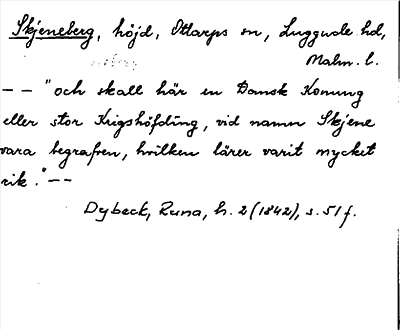 Skjeneberg, höjd, Ottarps sn, Luggude hd,
Malm. l.
-- "och skall här en Dansk Konung
eller stor Krigshöfding, vid namn Skjene
vara begrafven, hvilken lärer varit mycket
rik." --
Dybeck, Runa, h. 2 (1842), s. 51 f.